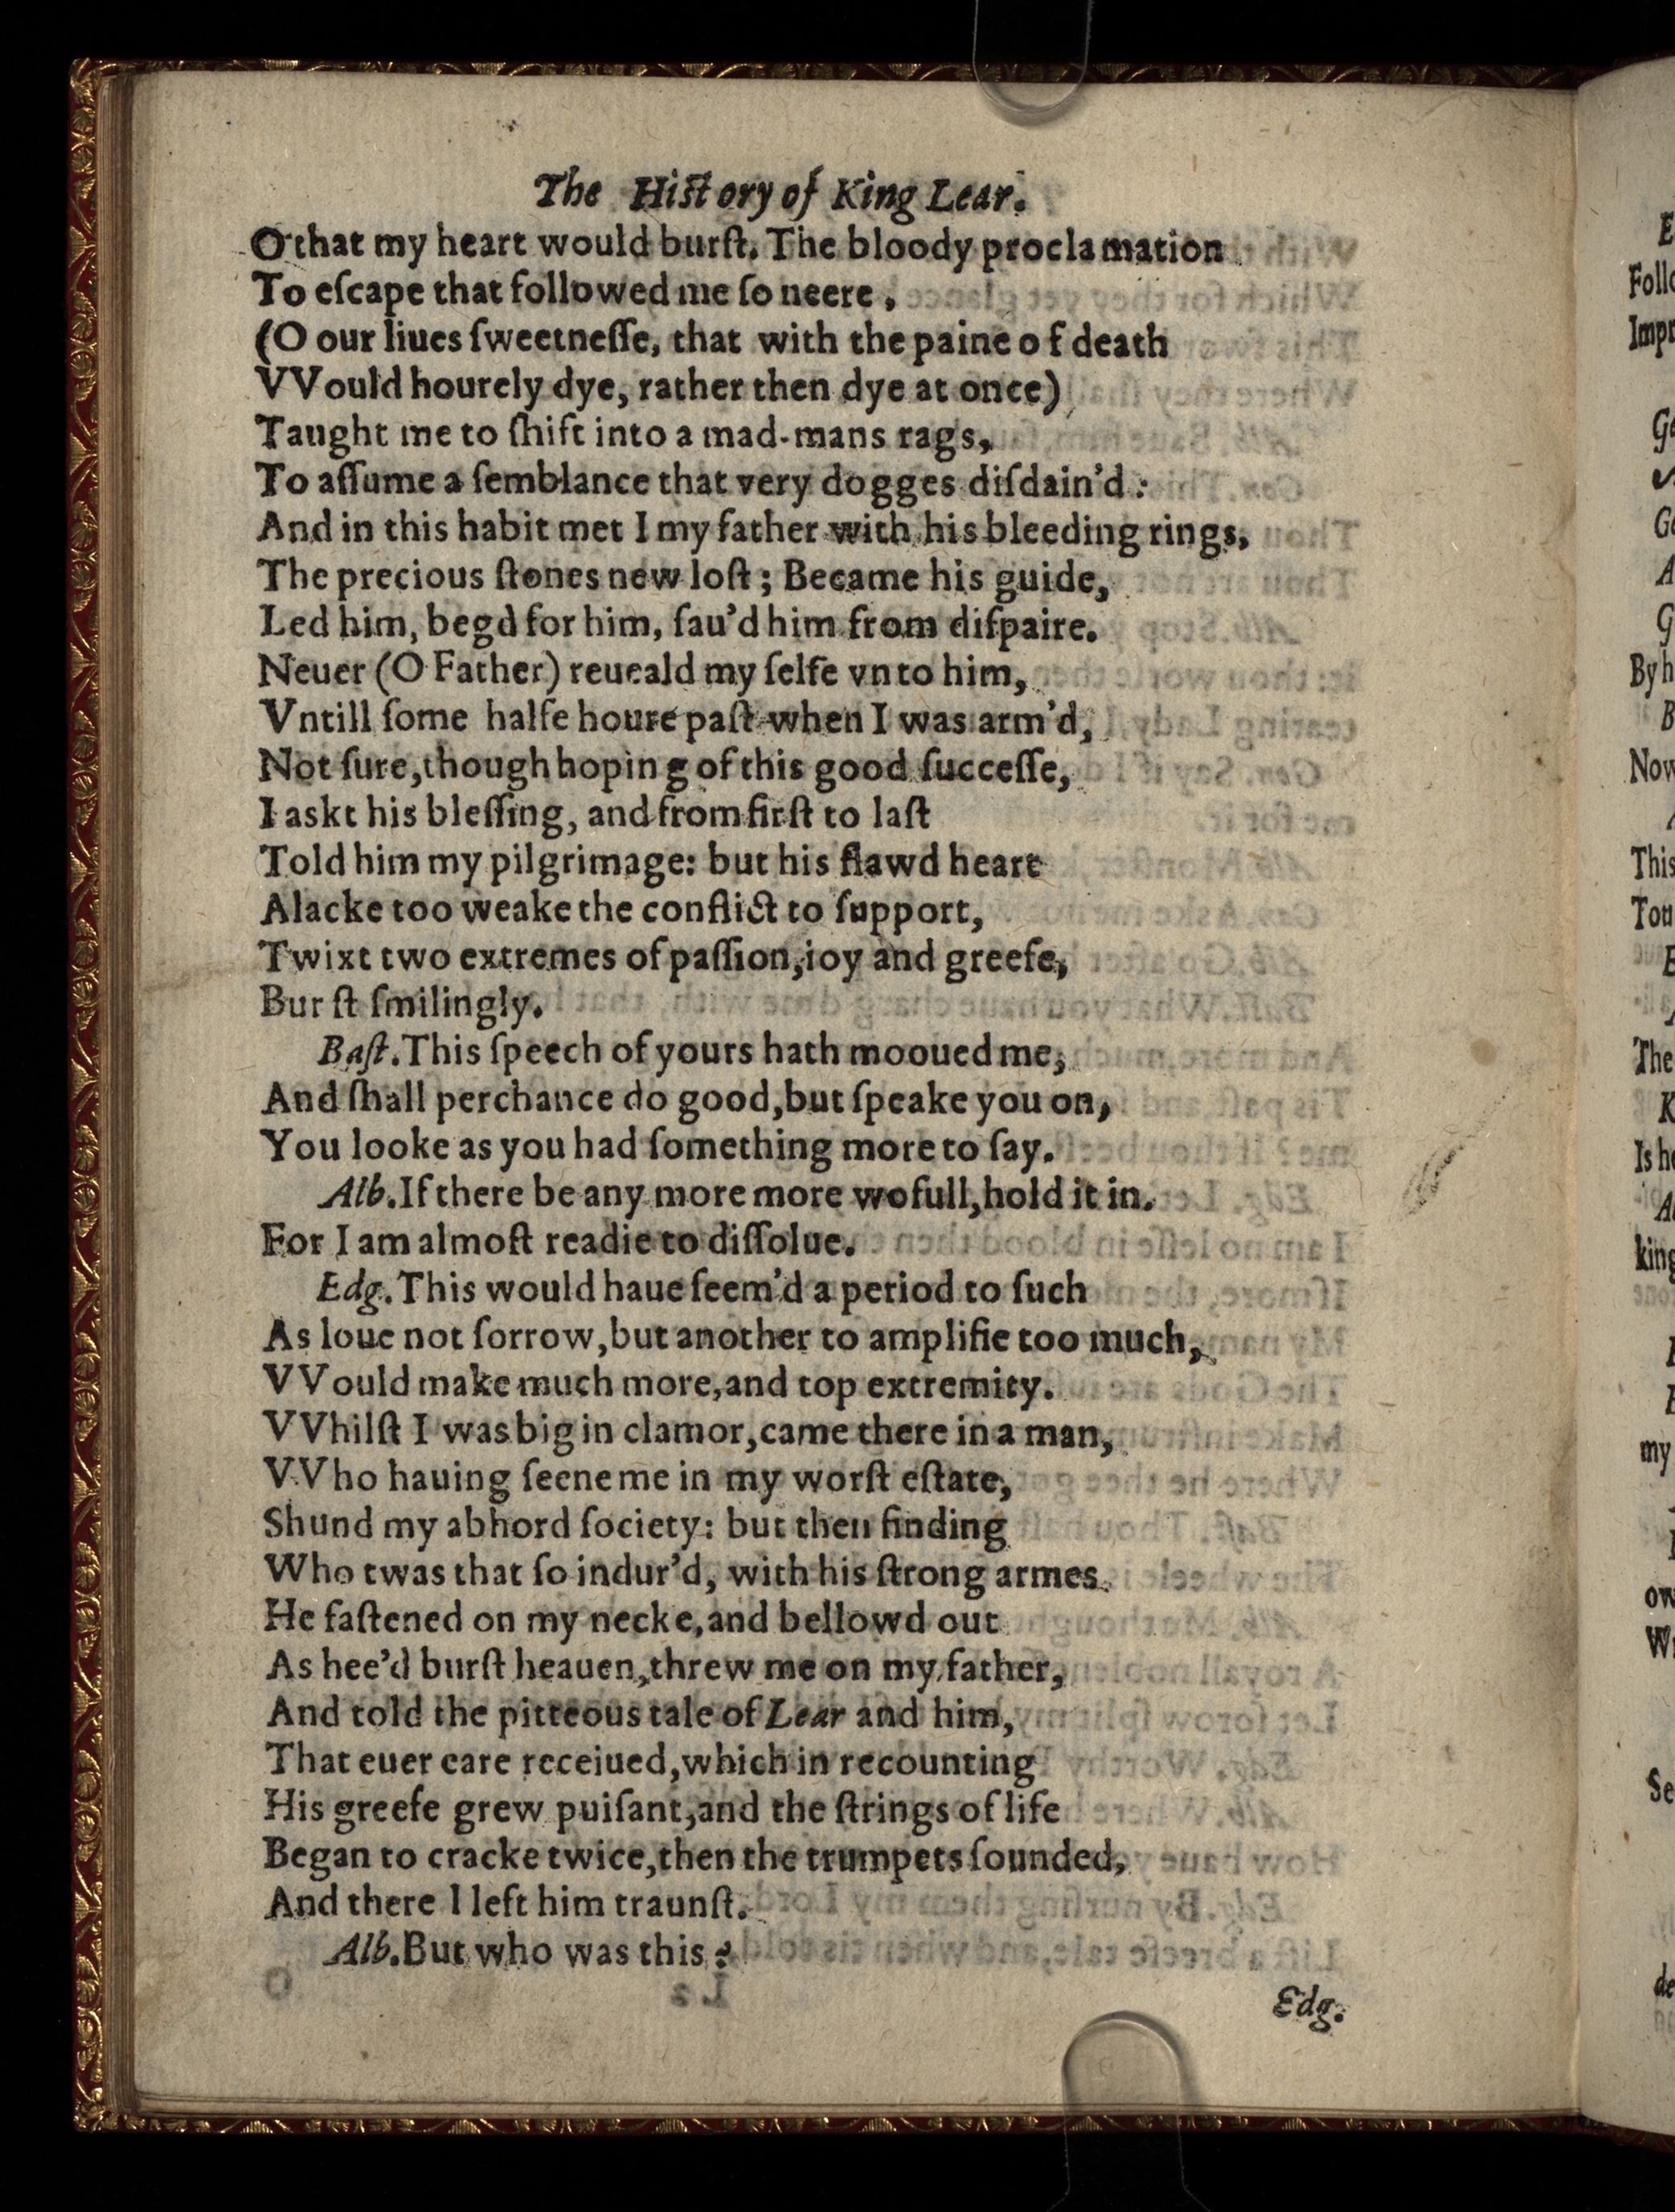 The Hiſtory of King Lear.
O that my heart would burſt. The bloody proclamation
To eſcape that followed me ſo neere,
(O our liues ſweetneſſe, that with the paine of death
VVould hourely dye, rather then dye at once)
Taught me to ſhift into a mad-mans rags,
To aſſume a ſemblance that very dogges diſdain'd:
And in this habit met I my father with his bleeding rings,
The precious ſtones new loſt; Became his guide,
Led him, begd for him, ſau'd him from diſpaire.
Neuer (O Father) reueald my ſelfe vnto him,
Vntill ſome halfe houre paſt when I was arm'd,
Not ſure, though hoping of this good ſucceſſe,
I askt his bleſſing, and from firſt to laſt
Told him my pilgrimage: but his flawd heart
Alacke too weake the conflict to ſupport,
Twixt two extremes of paſſion, ioy and greefe,
Burſt ſmilingly.
Baſt. This ſpeech of yours hath mooued me,
And ſhall perchance do good, but ſpeake you on,
You looke as you had ſomething more to ſay.
Alb. If there be any more more wofull, hold it in.
For I am almoſt readie to diſſolue.
Edg. This would haue ſeem'd a period to ſuch
As loue not ſorrow, but another to amplifie too much,
VVould make much more, and top extremity.
VVhilſt I was big in clamor, came there in a man,
VVho hauing ſeene me in my worſt eſtate,
Shund my abhord ſociety: but then finding
Who twas that ſo indur'd, with his ſtrong armes
He faſtened on my necke, and bellowd out
As hee'd burſt heauen, threw me on my father,
And told the pitteous tale of Lear and him,
That euer eare receiued, which in recounting
His greefe grew puiſant, and the ſtrings of life
Began to cracke twice, then the trumpets ſounded,
And there I left him traunſt.
Alb. But who was this?
Edg.